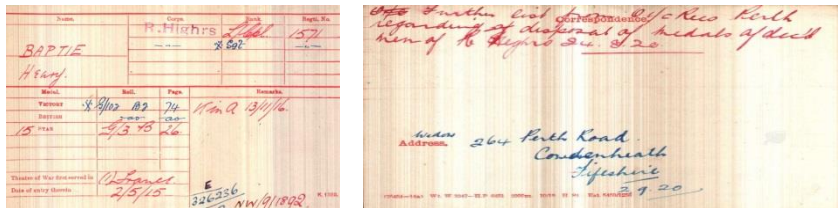 Name. Corps. Rank. Regtl. No.
R. Highrs L/Cpl 1571
BAPTIE
Henry.
Medal. Roll. Page. Remarks.
VICTORY 74 K in A 13/11/16.
BRITISH -do- -do-
15 STAR 26
Theatre of War first served in (1) France
Date of entry therein 2/5/15
E
326236
NW/9/1892
K. 1380.
Correspondence.
Further list from Rees Perth
regarding disposal of medals of decd
men of R Highrs 24.8.20
Widow
Address. 264 Perth Road.
Cowdenheath
Fifeshire
2.9.20